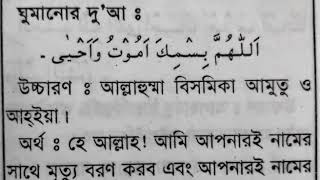 ঘুমানোর দু'আ ঃ
اَللّٰهُمَّ بِسْمِكَ اَمُوْتُ وَاَحْيٰى۔
উচ্চারণ ঃ আল্লাহুম্মা বিসমিকা আমূতু ও
আহ্ইয়া।
অর্থ ঃ হে আল্লাহ! আমি আপনারই নামের
সাথে মৃত্যু বরণ করব এবং আপনারই নামের